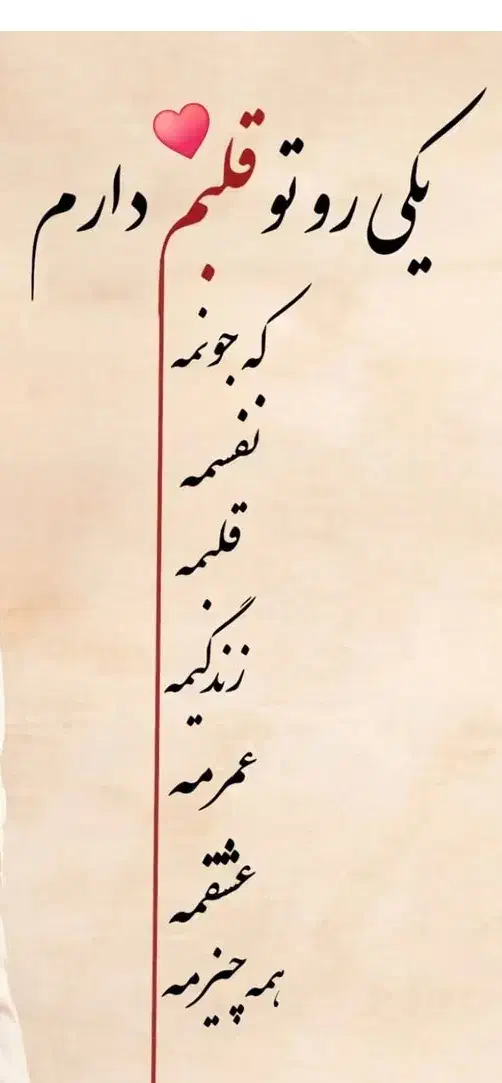 یکی رو تو قلبم دارم
که جونمه
نفسمه
قلبمه
زندگیمه
عمرمه
عشقمه
همه چیزمه